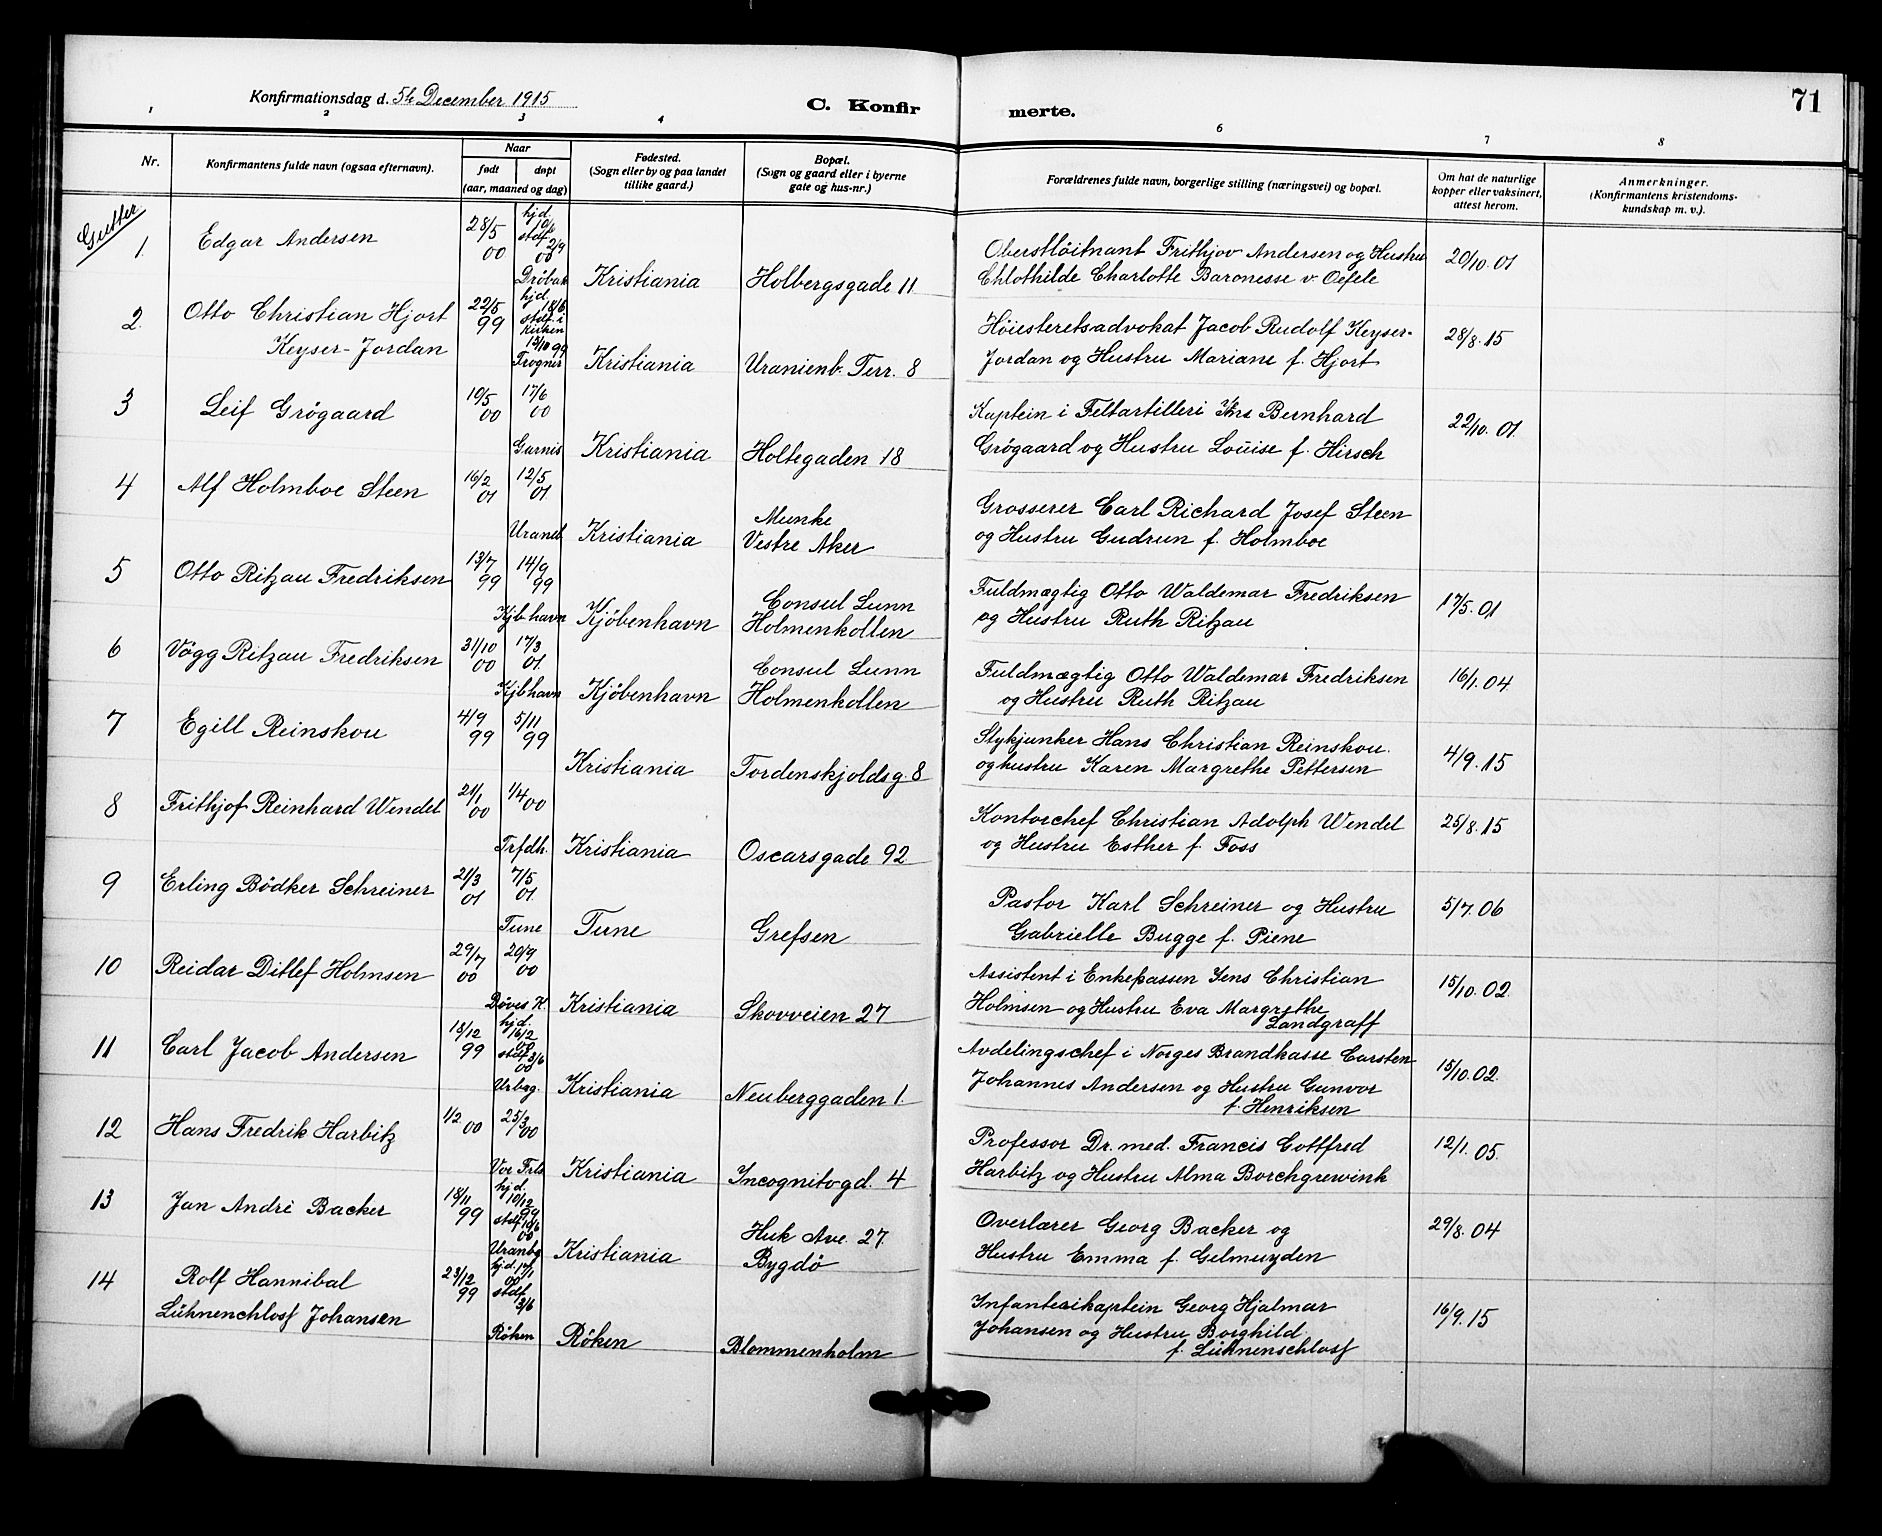 71
Konfirmationsdag d. 5te December 1915
C. Konfirmerte.
1 2 3 4 6 7 8
Nr.
Konfirmantens fulde navn (ogsaa efternavn).
Naar
født
døpt
(aar, maaned og dag)
Fødested.
(Sogn eller by og paa landet
tillike gaard.)
Bopæl.
(Sogn og gaard eller i byerne
gate og hus-nr.)
Forældrenes fulde navn, borgerlige stilling (næringsvei) og bopæl.
Om hat de naturlige
kopper eller vaksinert,
attest herom.
Anmerkninger.
(Konfirmantens kristendoms-
kundskap m. v.).
Gutter.
1
Edgar Andersen
28/5 00
hjd. 10/6
stdf 2/9 00
Dröbak
Kristiania
Holbergsgade 11
Oberstlöitnant Frithjov Andersen og Hustru
Chlothilde Charlotte Baronesse v. Oefele
20/10.01
2
Otto Christian Hjort
Keyser-Jordan
22/5 99
hjd. 18/6
stdf i
kirken
15/10 99
Frogner
Kristiania
Uranienb. Terr. 8
Höiesteretsadvokat Jacob Rudolf Keyser-
Jordan og Hustru Mariane f. Hjort
28/8.15
3
Leif Grögaard
19/5 00
17/6 00
Garnis
Kristiania
Holtegaden 18
Kaptein i Feltartilleri Bernhard
Grögaard og Hustru Louise f. Hirsch
22/10.01
4
Alf Holmboe Steen
16/2 01
12/5 01
Uranb
Kristiania
Munke
Vestre Aker
Grosserer Carl Richard Josef Steen
og Hustru Gudrun f. Holmboe
5
Otto Ritzau Fredriksen
13/7 99
14/9 99
Kjb havn
Kjöbenhavn
Consul Lunn
Holmenkollen
Fuldmægtig Otto Waldemar Fredriksen
og Hustru Ruth Ritzau
17/5.01
6
Vögg Ritzau Fredriksen
31/10 00
17/3 01.
Kjbhavn
Kjöbenhavn
Consul Lunn
Holmenkollen
Fuldmægtig Otto Waldemar Fredriksen
og Hustru Ruth Ritzau
16/1.04
7
Egill Reinskou
4/9 99
5/11 99
Kristiania
Tordenskjoldsg. 8
Stykjunker Hans Christian Reinskou.
og hustru Karen Margrethe Pettersen
4/9.15
8
Frithjof Reinhard Wendel
21/1 00
1/4 00
Trfdh.
Kristiania
Oscarsgade 92
Kontorchef Christian Adolph Wendel
og Hustru Esther f. Foss
25/8.15
9
Erling Bödker Schreiner
21/3 01
7/5 01.
Tune
Tune
Grefsen
Pastor Karl Schreiner og Hustru
Gabrielle Bugge f. Piene
5/7.06
10
Reidar Ditlef Holmsen
29/7 00
20/9 00
Döves K.
Kristiania
Skovveien 27
Assistent i Enkekassen Jens Christian
Holmsen og Hustru Eva Margrethe
Landgraff
15/10.02
11
Carl Jacob Andersen
18/12 99
hjd. 16/2 00
stdf 3/6 00
Urbg.
Kristiania
Neuberggaden 1.
Avdelingschef i Norges Brandkasse Carsten
Johannes Andersen og Hustru Gunvor
f. Henriksen
15/10.02
12
Hans Fredrik Harbitz
1/2 00
25/3 00
Vor Frls
Kristiania
Incognitogd. 4
Professor Dr. med. Francis Gottfred
Harbitz og Hustru Alma Borchgrewink
12/1.05.
13
Jan André Backer
18/11 99
hjd. 10/12 99
stdf 10/6 00
Uranbg
Kristiania
Huk Ave. 27.
Bygdö
Overlærer Georg Backer og
Hustru Emma f. Gelmuyden
29/8.04
14
Rolf Hannibal
Lühnenchloss Johansen
23/12 99
hjd. 17/1 00
stdf 3/6
Röken
Röken
Blommenholm
Infanterikaptein Georg Hjalmar
Johansen og Hustru Borghild
f. Lühnenschloss
16/9.15